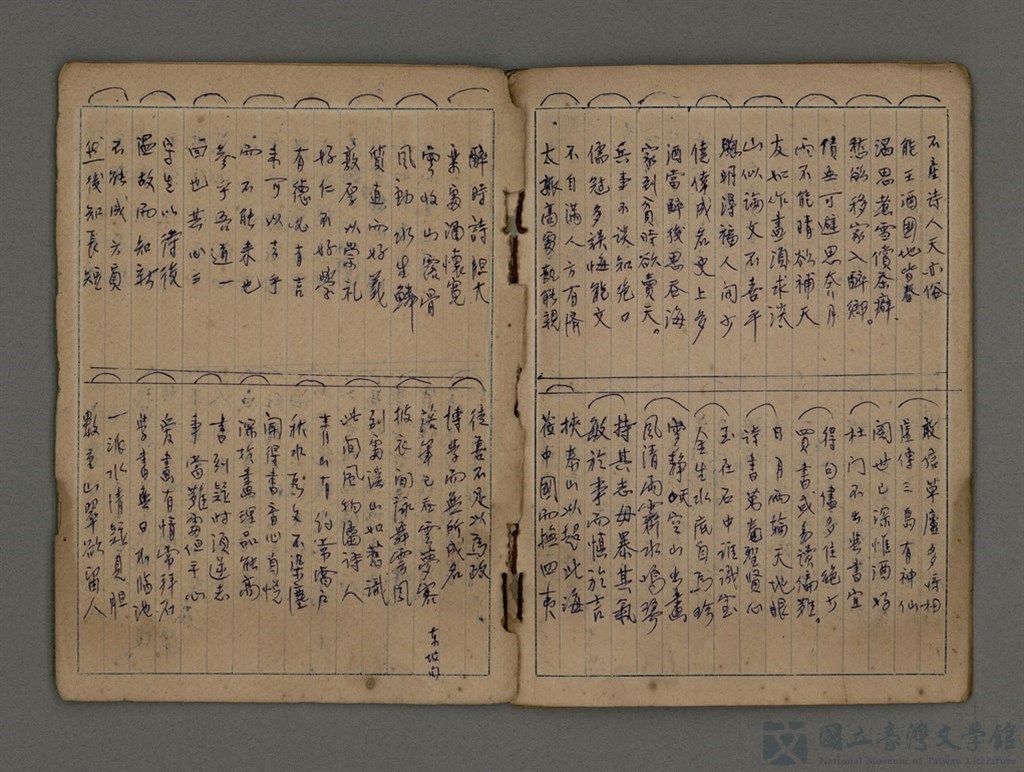 不産詩人天亦俗
能王酒國地皆春
濕思煮雪償茶癖。
愁欲移家入醉鄉。
債無可避思奔月
雨不能晴欲補天
友如作畫須求淡
山似論文不喜平
聰明得福人間少
僥倖成名史上多
酒當醉後思吞海
家到貧時欲賣天。
兵事不談知絶口
儒冠多誤悔能文
不自滿人方有濟
太
敢信草廬多將相
虛傳三島有神仙
閱世已深惟酒好
杜门不出與書宜
得句儘多佳絶少
買書或易讀偏難。
日月兩輪天地眼
詩書萬卷聖賢心
玉在石中誰識宝
金生水底自為珍
雲静峽空山出畫
風清雨霽水鳴琴
持其志毋暴其氣
敏於事而慎於言
挾泰山以超北海
莅中國而撫四夷
醉時詩胆大
棄
雲收山露骨
風動水生鱗
質直而好義
敦厚以崇礼
好仁不好學
有德必有言
未可以言乎
而不能来也
参乎吾道一
回也其心三
學生以待後
温故而知新
不能成方員
然後知長短
徒善不足以為政
博學而無所成名
談笑已吞雲夢客
披衣间詠舞雩風
到當溪山如舊識
此间風物屬詩人
青山有約常當戶
秋水為文不染塵
閑得書音心自悦
深於畫理品能高
書到疑时須送志
事當難處但平心
愛畫有情常拜石
學書無日不臨池
一派水清疑貝胆
數重山翠欲留人
东坡句
國立臺灣文學館
National Museum of Taiwan Literature